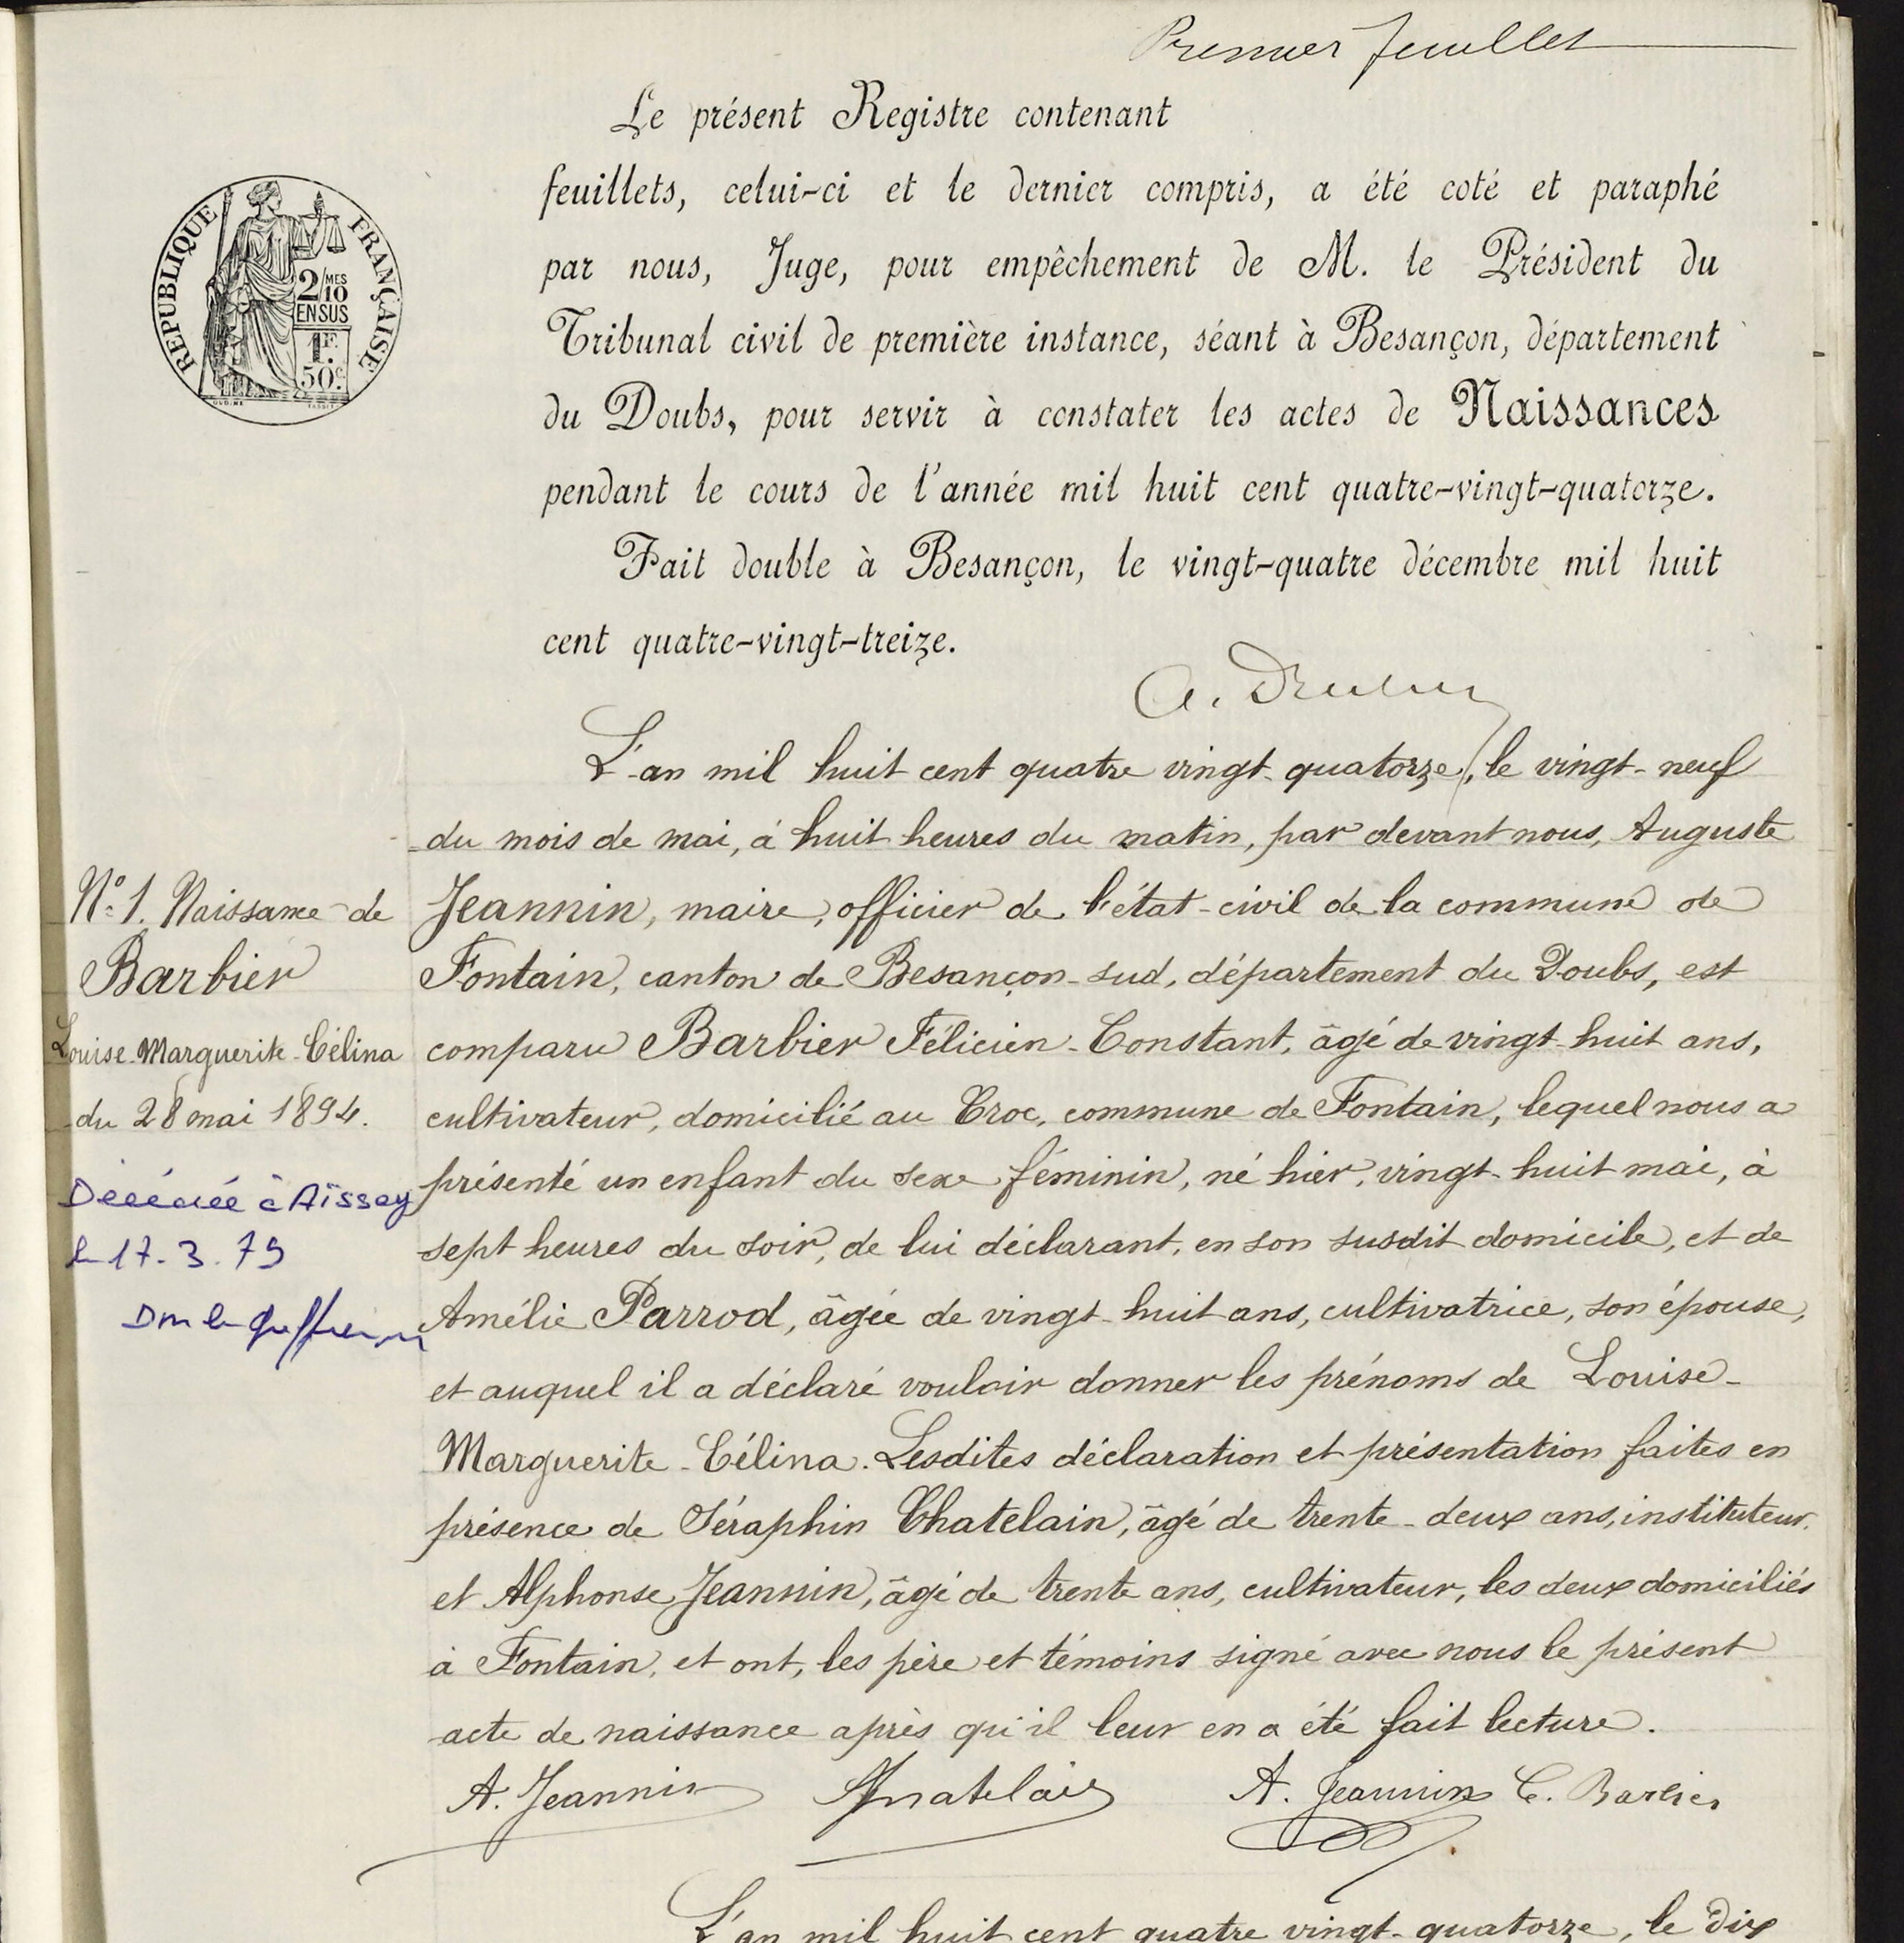 Premier feuillet
Le présent Registre contenant
feuillets, celui-ci et le dernier compris, a été coté et paraphé
par nous, Juge, pour empêchement de M. le Président du
Tribunal civil de première instance, séant à Besançon, département
du Doubs, pour servir à constater les actes de Naissances
pendant le cours de l'année mil huit cent quatre-vingt-quatorze.
Fait double à Besançon, le vingt-quatre décembre mil huit
cent quatre-vingt-treize.
REPUBLIQUE FRANÇAISE
2/MES
10
EN SUS
1F.
50c.
A.
L'an mil huit cent quatre vingt-quatorze, le vingt-neuf
du mois de mai, à huit heures du matin, par devant nous, Auguste
Jeannin, maire, officier de l'état-civil de la commune de
Fontain, canton de Besançon-sud, département du Doubs, est
comparu Barbier Félicien-Constant, âgé de vingt-huit ans,
cultivateur, domicilié au Croc, commune de Fontain, lequel nous a
présenté un enfant du sexe féminin, né hier, vingt-huit mai, à
sept heures du soir, de lui déclarant, en son susdit domicile, et de
Amélie Parrod, âgée de vingt-huit ans, cultivatrice, son épouse,
et auquel il a déclaré vouloir donner les prénoms de Louise-
Marguerite-Célina. Lesdites déclaration et présentation faites en
présence de Séraphin Chatelain, âgé de trente-deux ans, instituteur,
et Alphonse Jeannin, âgé de trente ans, cultivateur, les deux domiciliés
à Fontain, et ont, les père et témoins signé avec nous le présent
acte de naissance après qu'il leur en a été fait lecture.
A. Jeannin Chatelain A. Jeannin C. Barbier
N° 1. Naissance de
Barbier
Louise-Marguerite-Célina
du 28 mai 1894.
Décédée à Aïssey
le 17.3.79
L'an mil huit cent quatre vingt-quatorze, le dix